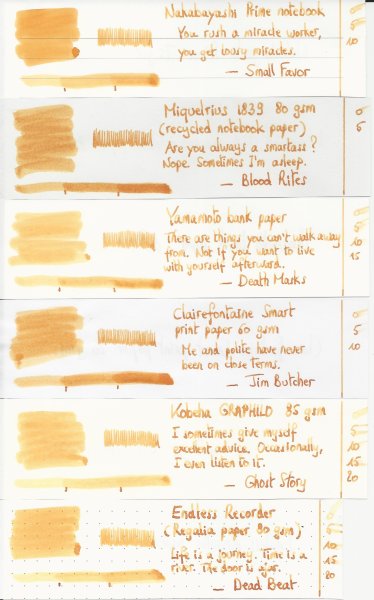 Nakabayashi Prime notebook
You rush a miracle worker,
you get lousy miracles.
— Small Favor
0
5
10
Miquelrius 1839 80 gsm
(recycled notebook paper)
Are you always a smartass?
Nope. Sometimes I'm asleep.
— Blood Rites
0
5
Yamamoto bank paper
There are things you can't walk away
from. Not if you want to live
with yourself afterward.
— Death Masks
0
5
10
15
Clairefontaine Smart
print paper 60 gsm
Me and polite have never
been on close terms.
— Jim Butcher
0
5
10
Kobeha GRAPHILO 85 gsm
I sometimes give myself
excellent advice. Occasionally,
I even listen to it.
— Ghost Story
0
5
10
15
20
Endless Recorder
(Regalia paper 80 gsm)
Life is a journey. Time is a
river. The door is ajar.
— Dead Beat
0
5
10
15
20